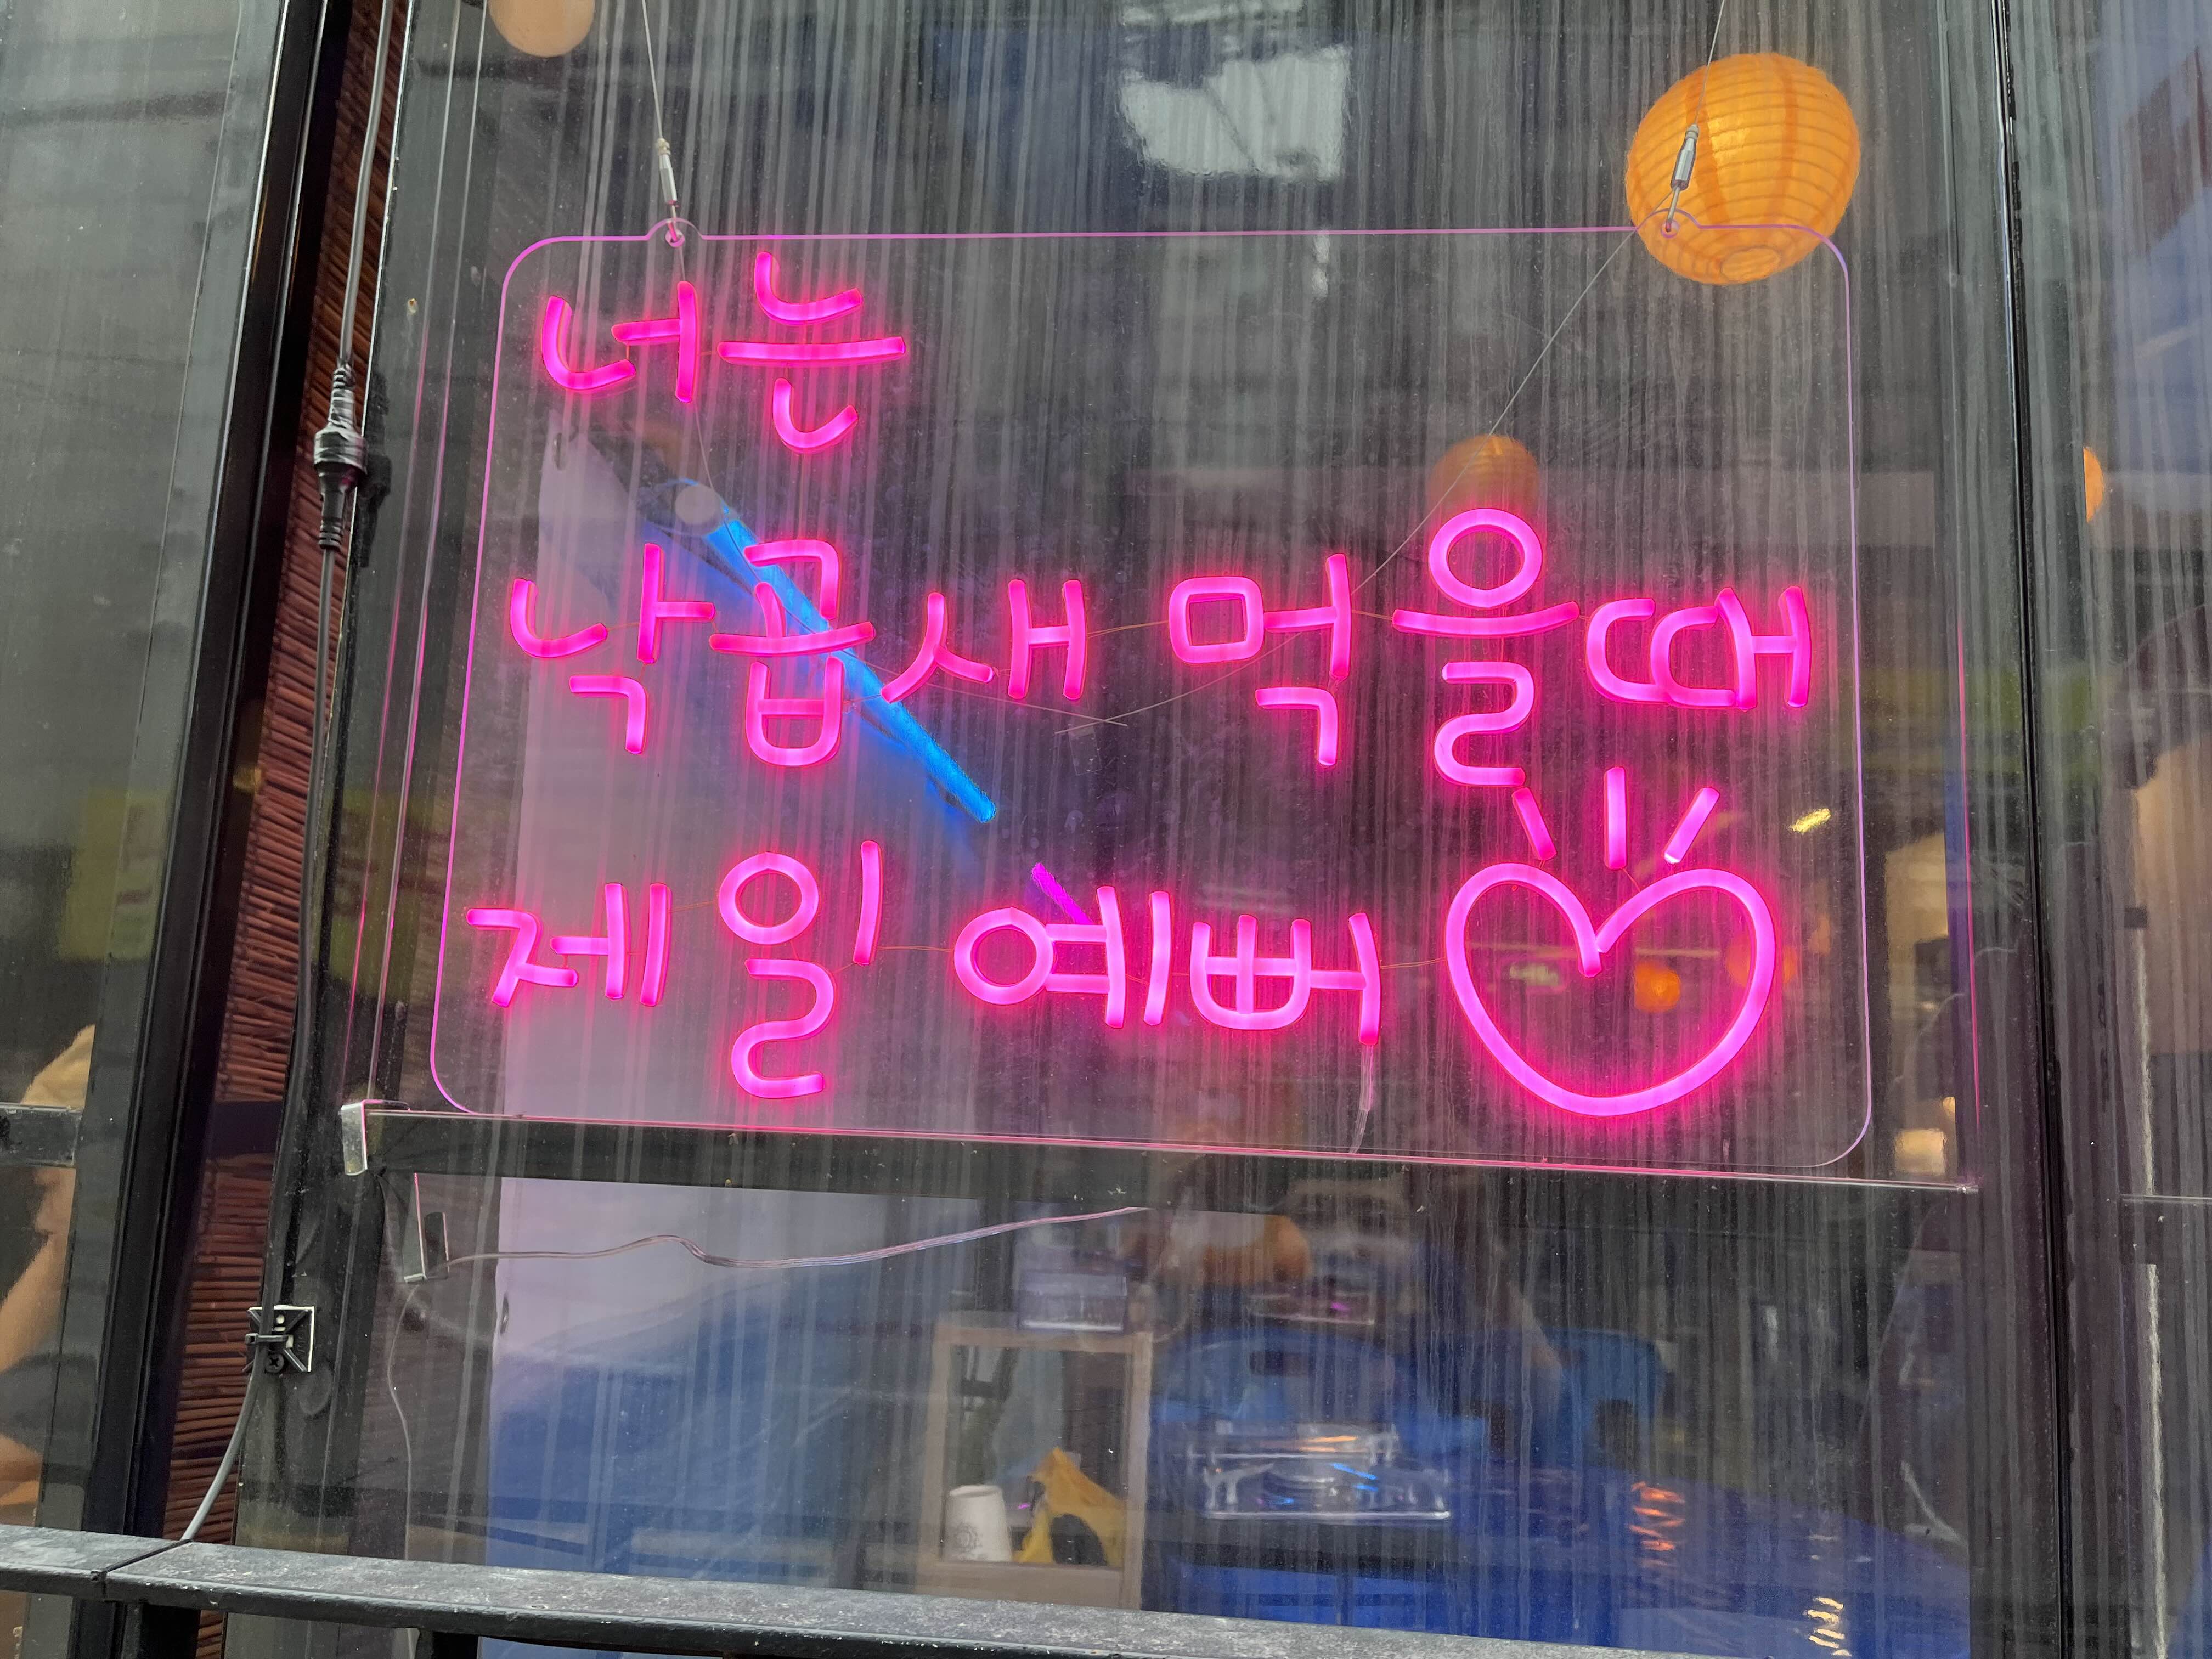 너는
낙곱새 먹을때
제일 예뻐